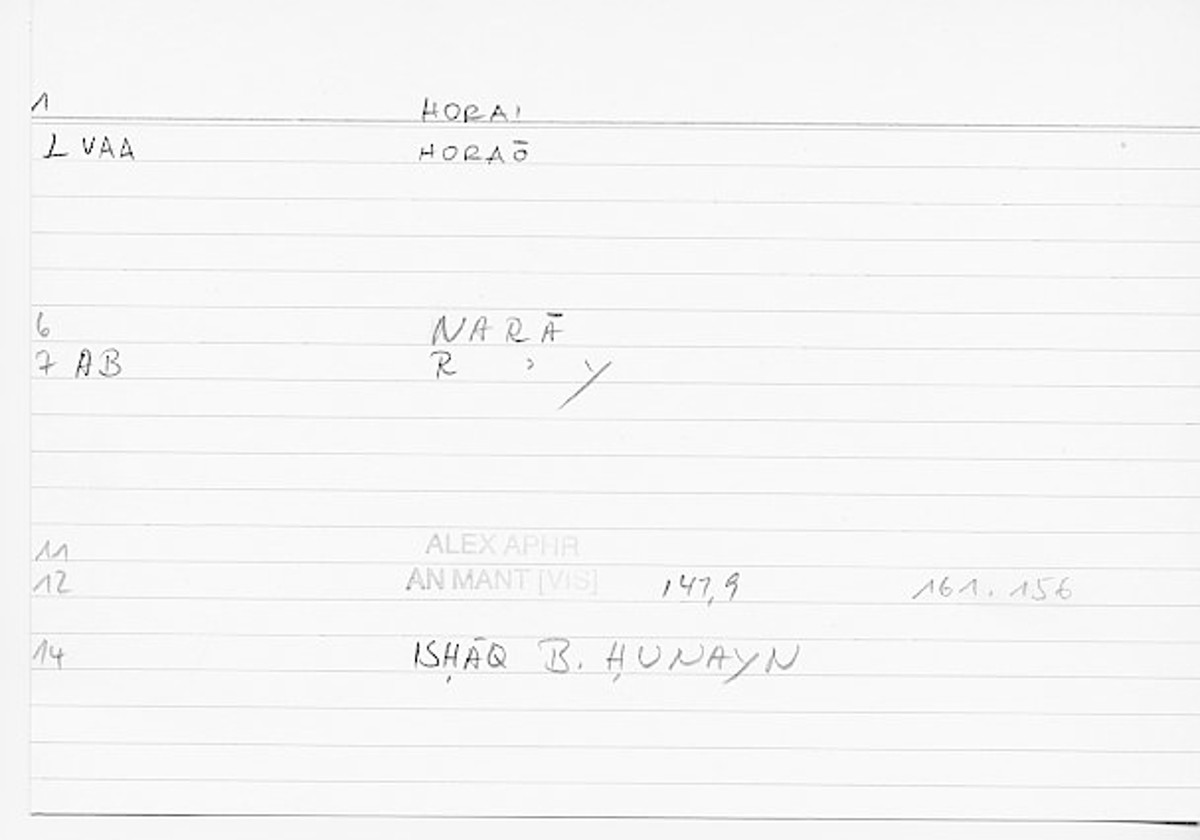 1 HORAI
L VAA HORAŌ
6 NARĀ
7 AB R ʾ Y
11 ALEX APHR
12 AN MANT [VIS] 147,9 161.156
14 ISḤĀQ B. ḤUNAYN